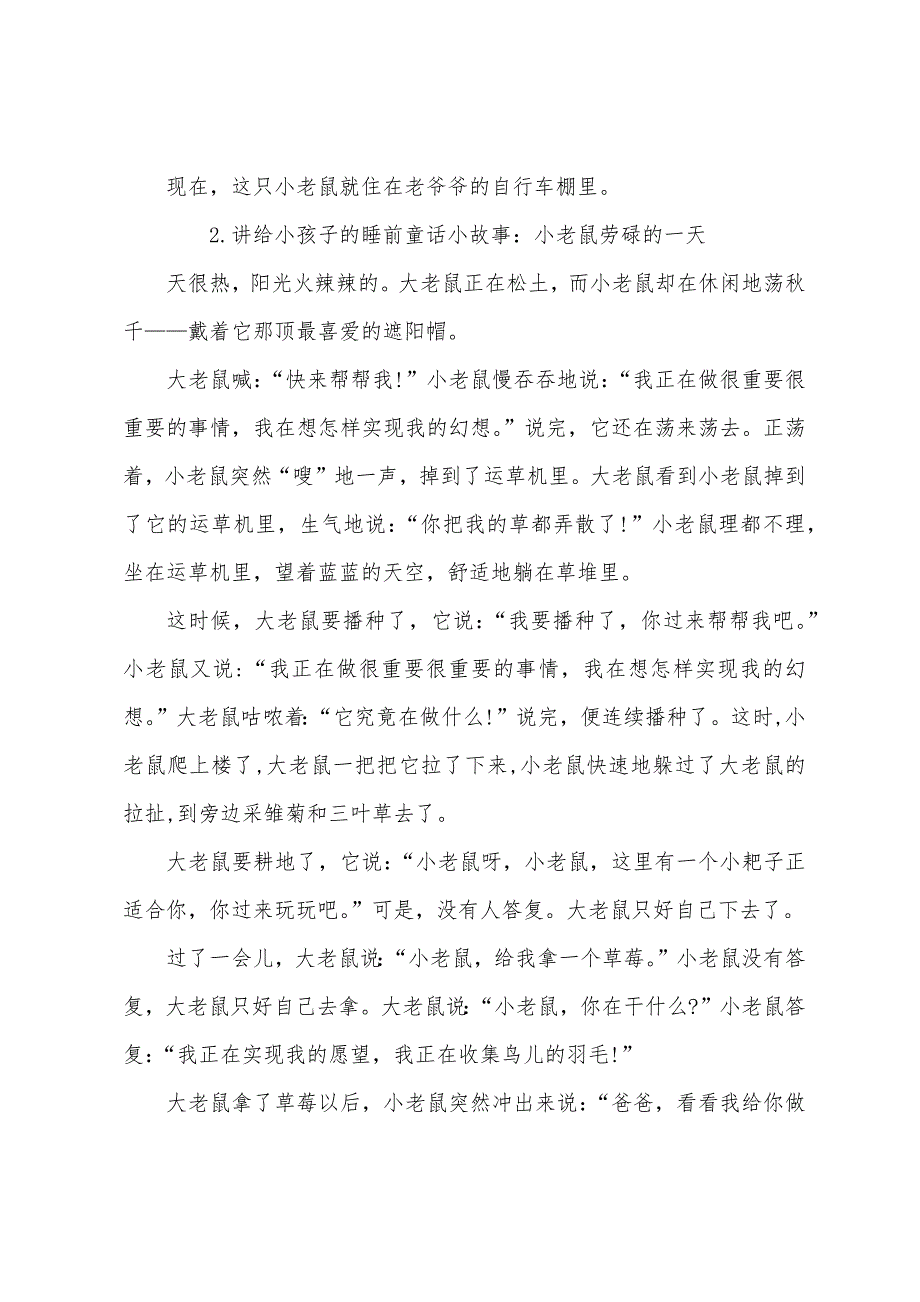 现在，这只小老鼠就住在老爷爷的自行车棚里。
2.讲给小孩子的睡前童话小故事：小老鼠劳碌的一天
天很热，阳光火辣辣的。大老鼠正在松土，而小老鼠却在休闲地荡秋
千——戴着它那顶最喜爱的遮阳帽。
大老鼠喊：“快来帮帮我!”小老鼠慢吞吞地说：“我正在做很重要很
重要的事情，我在想怎样实现我的幻想。”说完，它还在荡来荡去。正荡
着，小老鼠突然“嗖”地一声，掉到了运草机里。大老鼠看到小老鼠掉到
了它的运草机里，生气地说：“你把我的草都弄散了!”小老鼠理都不理，
坐在运草机里，望着蓝蓝的天空，舒适地躺在草堆里。
这时候，大老鼠要播种了，它说：“我要播种了，你过来帮帮我吧。”
小老鼠又说：“我正在做很重要很重要的事情，我在想怎样实现我的幻
想。”大老鼠咕哝着：“它究竟在做什么!”说完，便连续播种了。这时,小
老鼠爬上楼了,大老鼠一把把它拉了下来,小老鼠快速地躲过了大老鼠的
拉扯,到旁边采雏菊和三叶草去了。
大老鼠要耕地了，它说：“小老鼠呀，小老鼠，这里有一个小耙子正
适合你，你过来玩玩吧。”可是，没有人答复。大老鼠只好自己下去了。
过了一会儿，大老鼠说：“小老鼠，给我拿一个草莓。”小老鼠没有答
复，大老鼠只好自己去拿。大老鼠说：“小老鼠，你在干什么?”小老鼠答
复：“我正在实现我的愿望，我正在收集鸟儿的羽毛!”
大老鼠拿了草莓以后，小老鼠突然冲出来说：“爸爸，看看我给你做